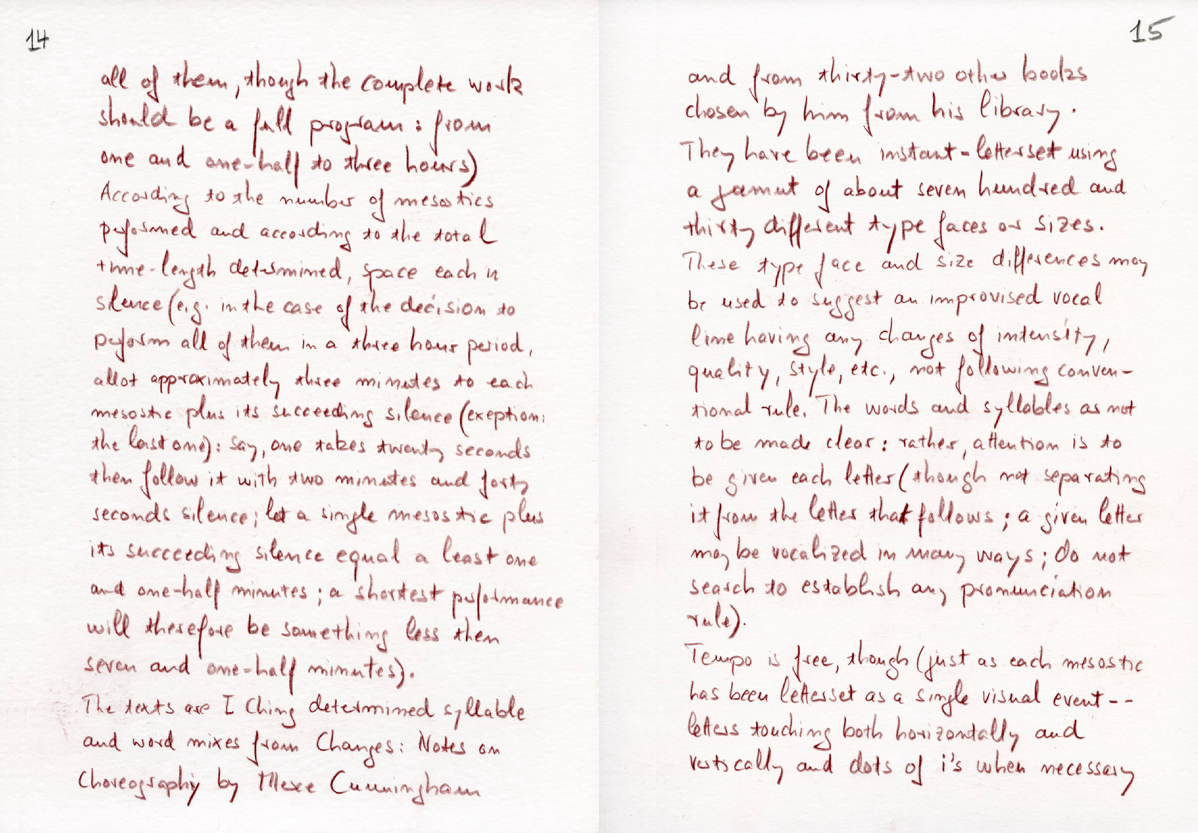 14
all of them, though the complete work
should be a full program: from
one and one-half to three hours)
According to the number of mesostics
performed and according to the total
time-length determined, space each in
silence (e.g. in the case of the decision to
perform all of them in a three hour period,
allot approximately three minutes to each
mesostic plus its succeeding silence (exeption:
the last one): say, one takes twenty seconds
then follow it with two minutes and forty
seconds silence; let a single mesostic plus
its succeeding silence equal a least one
and one-half minutes; a shortest performance
will therefore be something less then
seven and one-half minutes).
The texts are I Ching determined syllable
and word mixes from Changes: Notes on
Choreography by Merce Cunningham
15
and from thirty-two other books
chosen by him from his library.
They have been instant-letterset using
a gamut of about seven hundred and
thirty different type faces or sizes.
These type face and size differences may
be used to suggest an improvised vocal
line having any changes of intensity,
quality, style, etc., not following conven-
tional rule. The words and syllables as not
to be made clear: rather, attention is to
be given each letter (though not separating
it from the letter that follows; a given letter
may be vocalized in many ways; do not
search to establish any pronunciation
rule).
Tempo is free, though (just as each mesostic
has been letterset as a single visual event--
letters touching both horizontally and
vertically and dots of i's when necessary